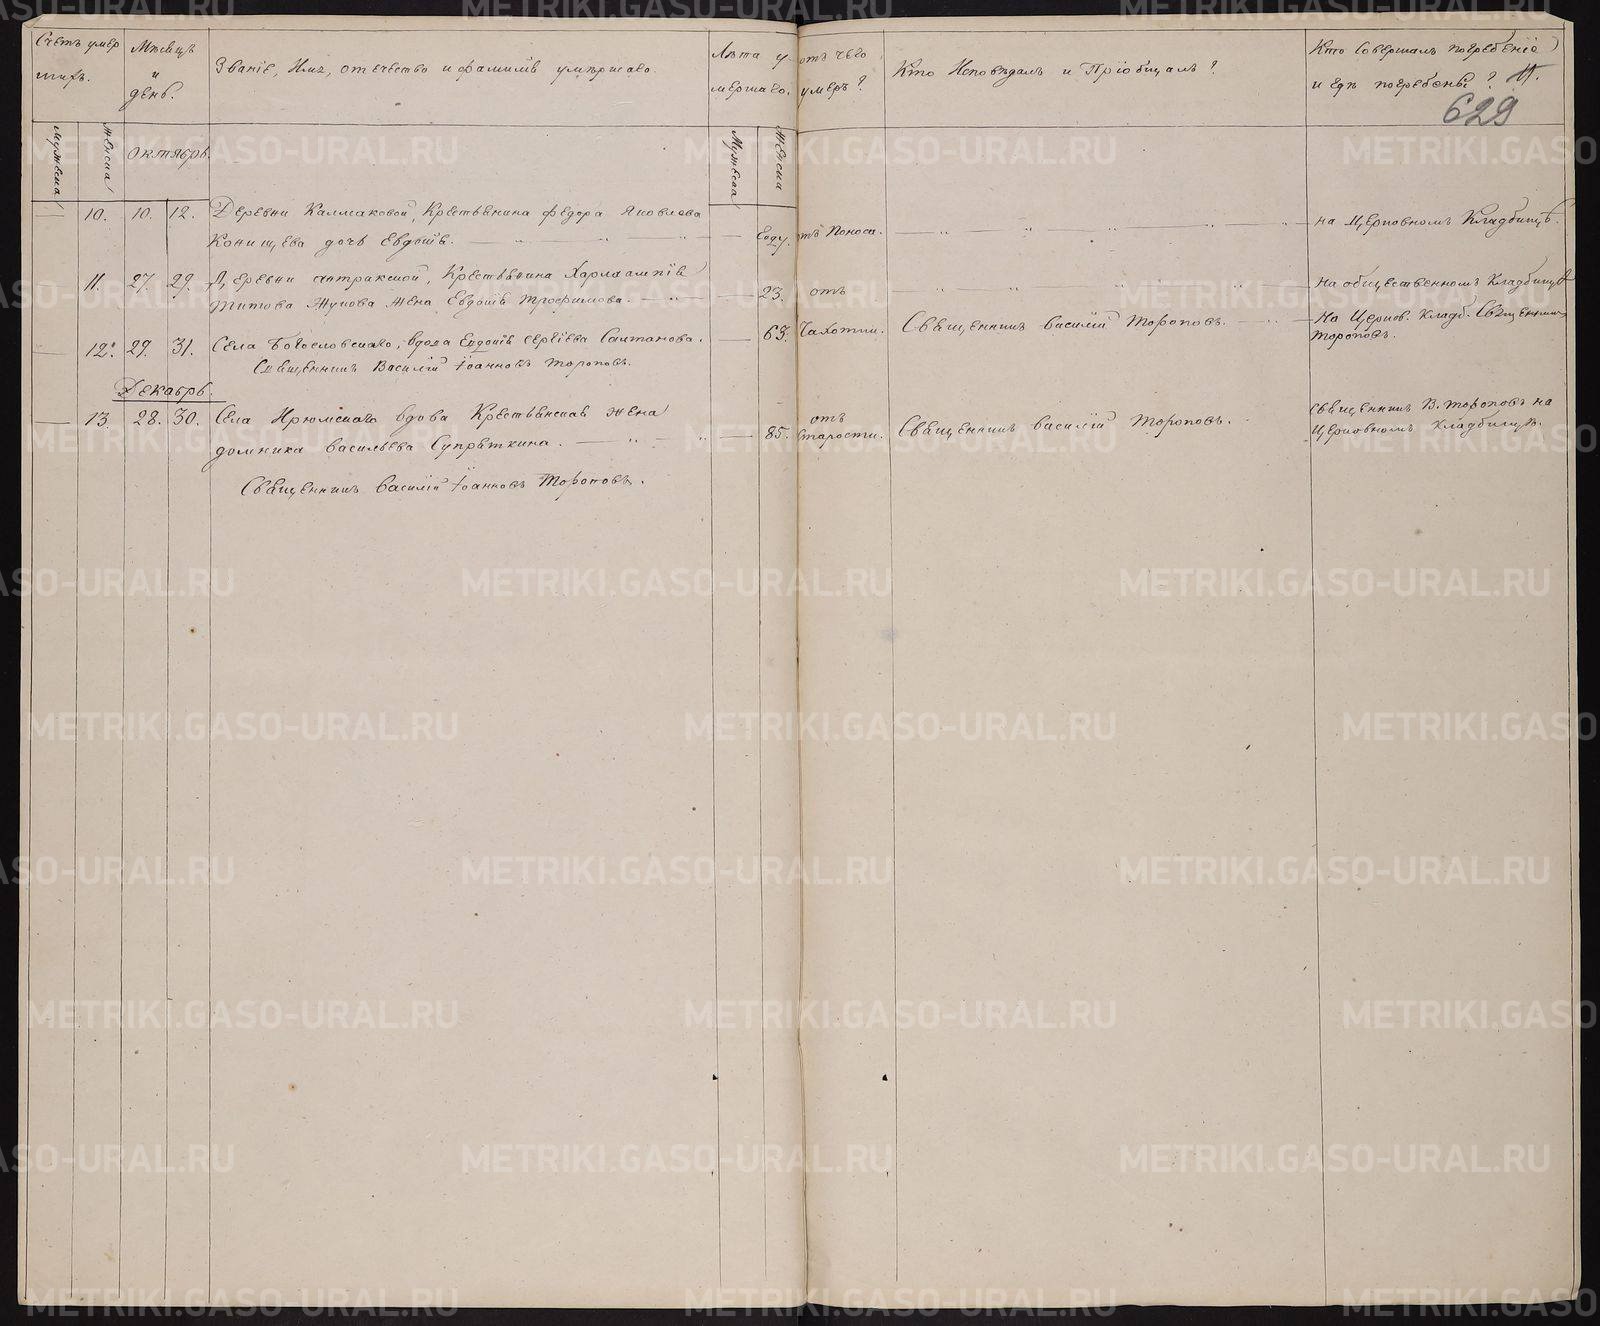 Счетъ умер
шихъ.
Мѣсяцъ
и
день.
Званіе, Имя, отечество и фамилія умершаго.
Лѣта у
мершаго.
отъ чего
умеръ?
Кто Исповѣдалъ и Пріобщалъ?
Кто Совершалъ погребеніе
и гдѣ погребены?
11.
629
Мужеска
Женска
Октябрь.
Мужеска
Женска
10. 10. 12. Деревни Калмаковой, Крестьянина Федора Яковлева
Конищева дочь Евдокія.
Году. отъ Поноса.
на Церковномъ Кладбищѣ.
11. 27. 29. Деревни Крестьянина Харлампія
Титова Жукова жена Евдокія Трофимова.
23. отъ
на общественномъ Кладбищѣ
12. 29. 31. Села Богословскаго, вдова Евдокія Сергіева Салтанова.
63. Чахотки. Священникъ Василій Тороповъ.
На Церков. Кладб. Священникъ
Тороповъ.
Священникъ Василій Іоанновъ Тороповъ.
Декабрь.
13. 28. 30. Села Ирюмскаго вдова Крестьянская жена
Домника Васильева Супрыткина.
85. отъ
Старости. Священникъ Василій Тороповъ.
Священникъ В. Тороповъ на
Церковномъ Кладбищѣ.
Священникъ Василій Іоанновъ Тороповъ.
METRIKI.GASO-URAL.RU